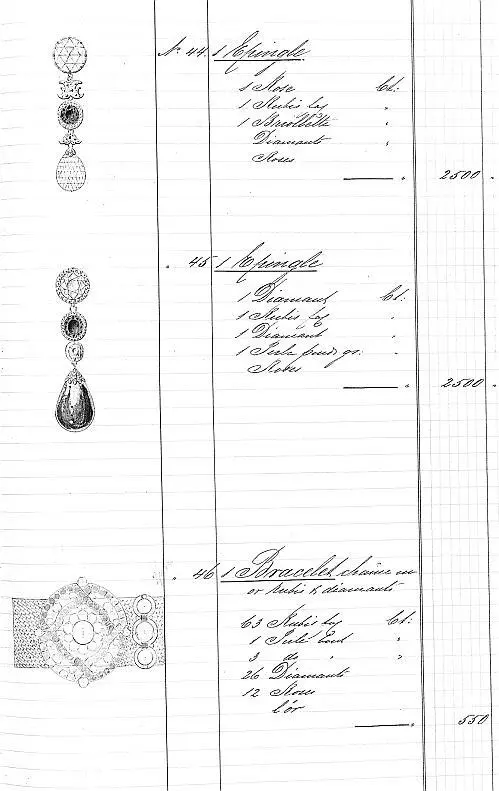 No. 44. 1 Epingle.
1 Rose Ct:
1 Rubis Cey "
1 Briollette "
Diamants "
Roses
" 2500 "
" 45 1 Epingle
1 Diamant Ct:
1 Rubis Cey "
1 Diamant "
1 Perle gr. "
Roses
" 2500 "
" 46 1 Bracelet, chaine en
or Rubis & diamants
63 Rubis Cey Ct:
1 Perle "
3 do " "
26 Diamants
12 Roses
l'or
" 550